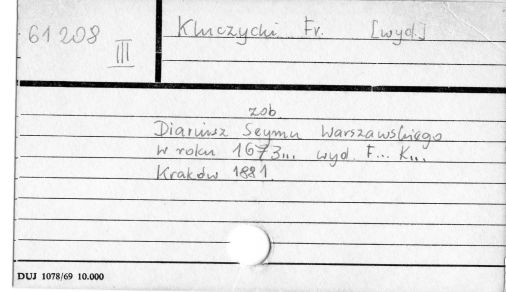 61208
III
Kluczycki Fr. [wyd.]
zob.
Diariusz Seymu Warszawskiego
w roku 1673... wyd. F... K...
Kraków 1881.
DUJ 1078/69 10.000